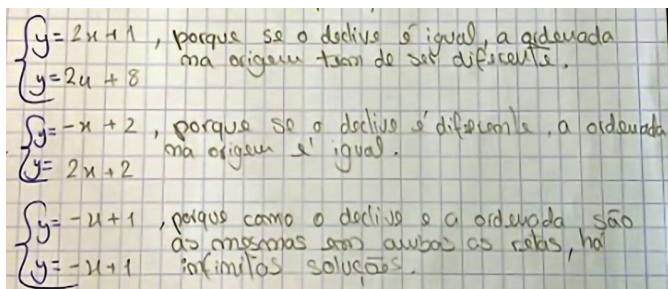 y = 2x + 1, porque se o declive é igual, a ordenada
na origem tem de ser diferente.
y = 2x + 8
y = -x + 2, porque se o declive é diferente, a ordenada
na origem é igual.
y = 2x + 2
y = -x + 1, porque como o declive e a ordenada são
as mesmas em ambas as retas, há
y = -x + 1 infinitas soluções.